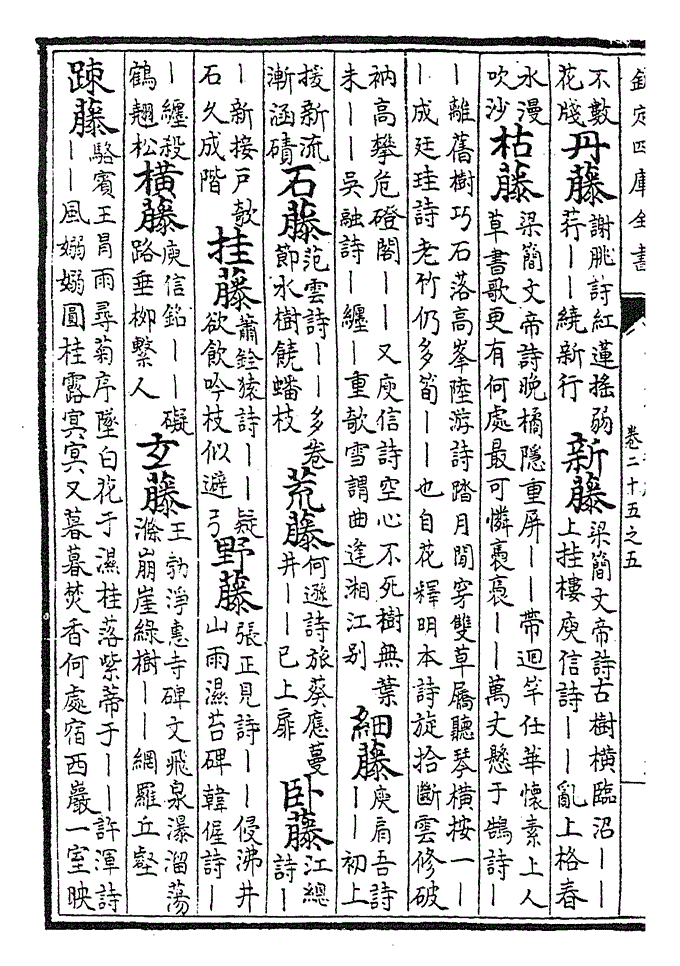 欽定四庫全書 卷二十五之五
不數花牋 丹藤 謝朓詩紅蓮搖弱荇丨丨繞新行 新藤 梁簡文帝詩古樹橫臨沼丨丨上挂樓庾信詩丨丨亂上格春
水漫吹沙 枯藤 梁簡文帝詩晚橘隱重屏丨丨帶迴竿仕華懷素上人草書歌更有何處最可憐裹裹丨丨萬丈懸于鵠詩丨
丨離舊樹巧石落高峯陸游詩踏月閒穿雙草屩聽琴橫按一丨丨成廷珪詩老竹仍多筍丨丨也自花釋明本詩旋拾斷雲修破
衲高攀危磴閣丨丨又庾信詩空心不死樹無葉未丨丨吳融詩丨纏丨重歌雪謂曲逢湘江别 細藤 庾肩吾詩丨丨初上
援新流漸涵磧 石藤 范雲詩丨丨多卷節水樹饒蟠枝 荒藤 何遜詩旅葵應蔓井丨丨已上扉 卧藤 江總詩丨
丨新接戶欹石久成階 挂藤 蕭銓猿詩丨丨疑欲飲吟枝似避弓 野藤 張正見詩丨丨侵沸井山雨濕苔碑韓偓詩丨
丨纏殺鶴翹松 橫藤 庾信銘丨丨礙路垂柳繫人 玄藤 王勃淨惠寺碑文飛泉瀑溜蕩滌崩崖綠樹丨丨網羅丘壑
踈藤 駱賓王冒雨尋菊序墜白花于濕桂落紫蒂于丨丨許渾詩丨丨風嫋嫋圓桂露冥冥又暮暮焚香何處宿西巖一室映